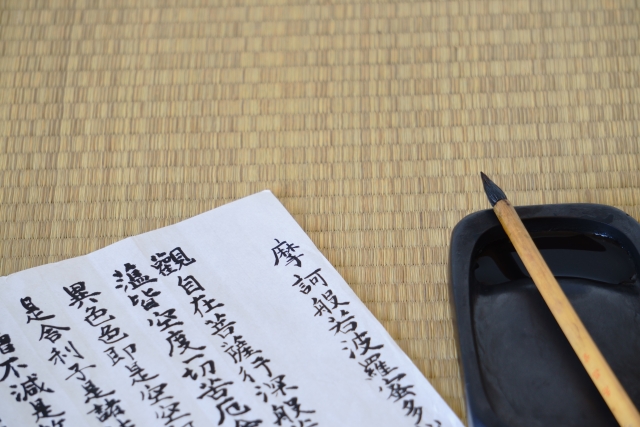 摩訶般若波羅蜜多
觀自在菩薩行深般
蘊皆空度一切苦厄舍
異色色即是空空
是舍利子是諸
不減是